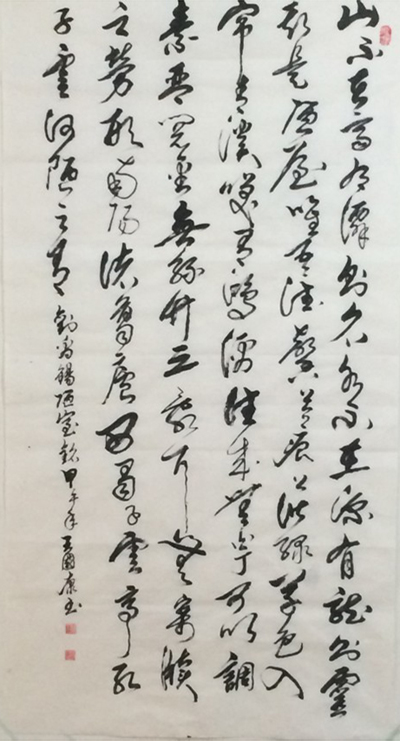 山不在高有僊則名水不在深有龍則靈
斯是陋室唯吾德馨苔痕上階綠草色入
帘青談笑有鴻儒往來無白丁可以調
素琴閱金無絲竹之亂耳無案牘
之勞形南陽諸葛廬西蜀子雲亭孔
子雲何陋之有 劉禹錫陋室銘 甲午年 王國康書